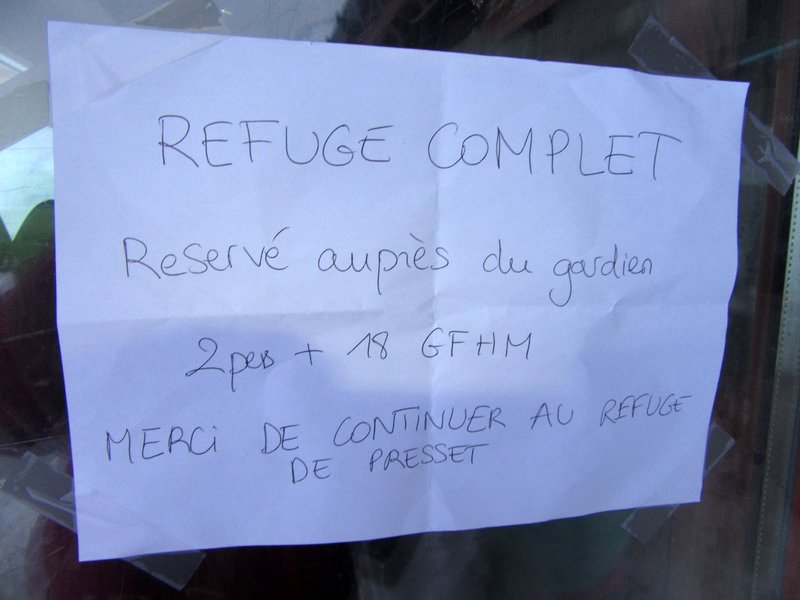 REFUGE COMPLET
Reservé auprès du gardien
2 pers + 18 GFHM
MERCi DE CONTINUER AU REFUGE
DE PRESSET